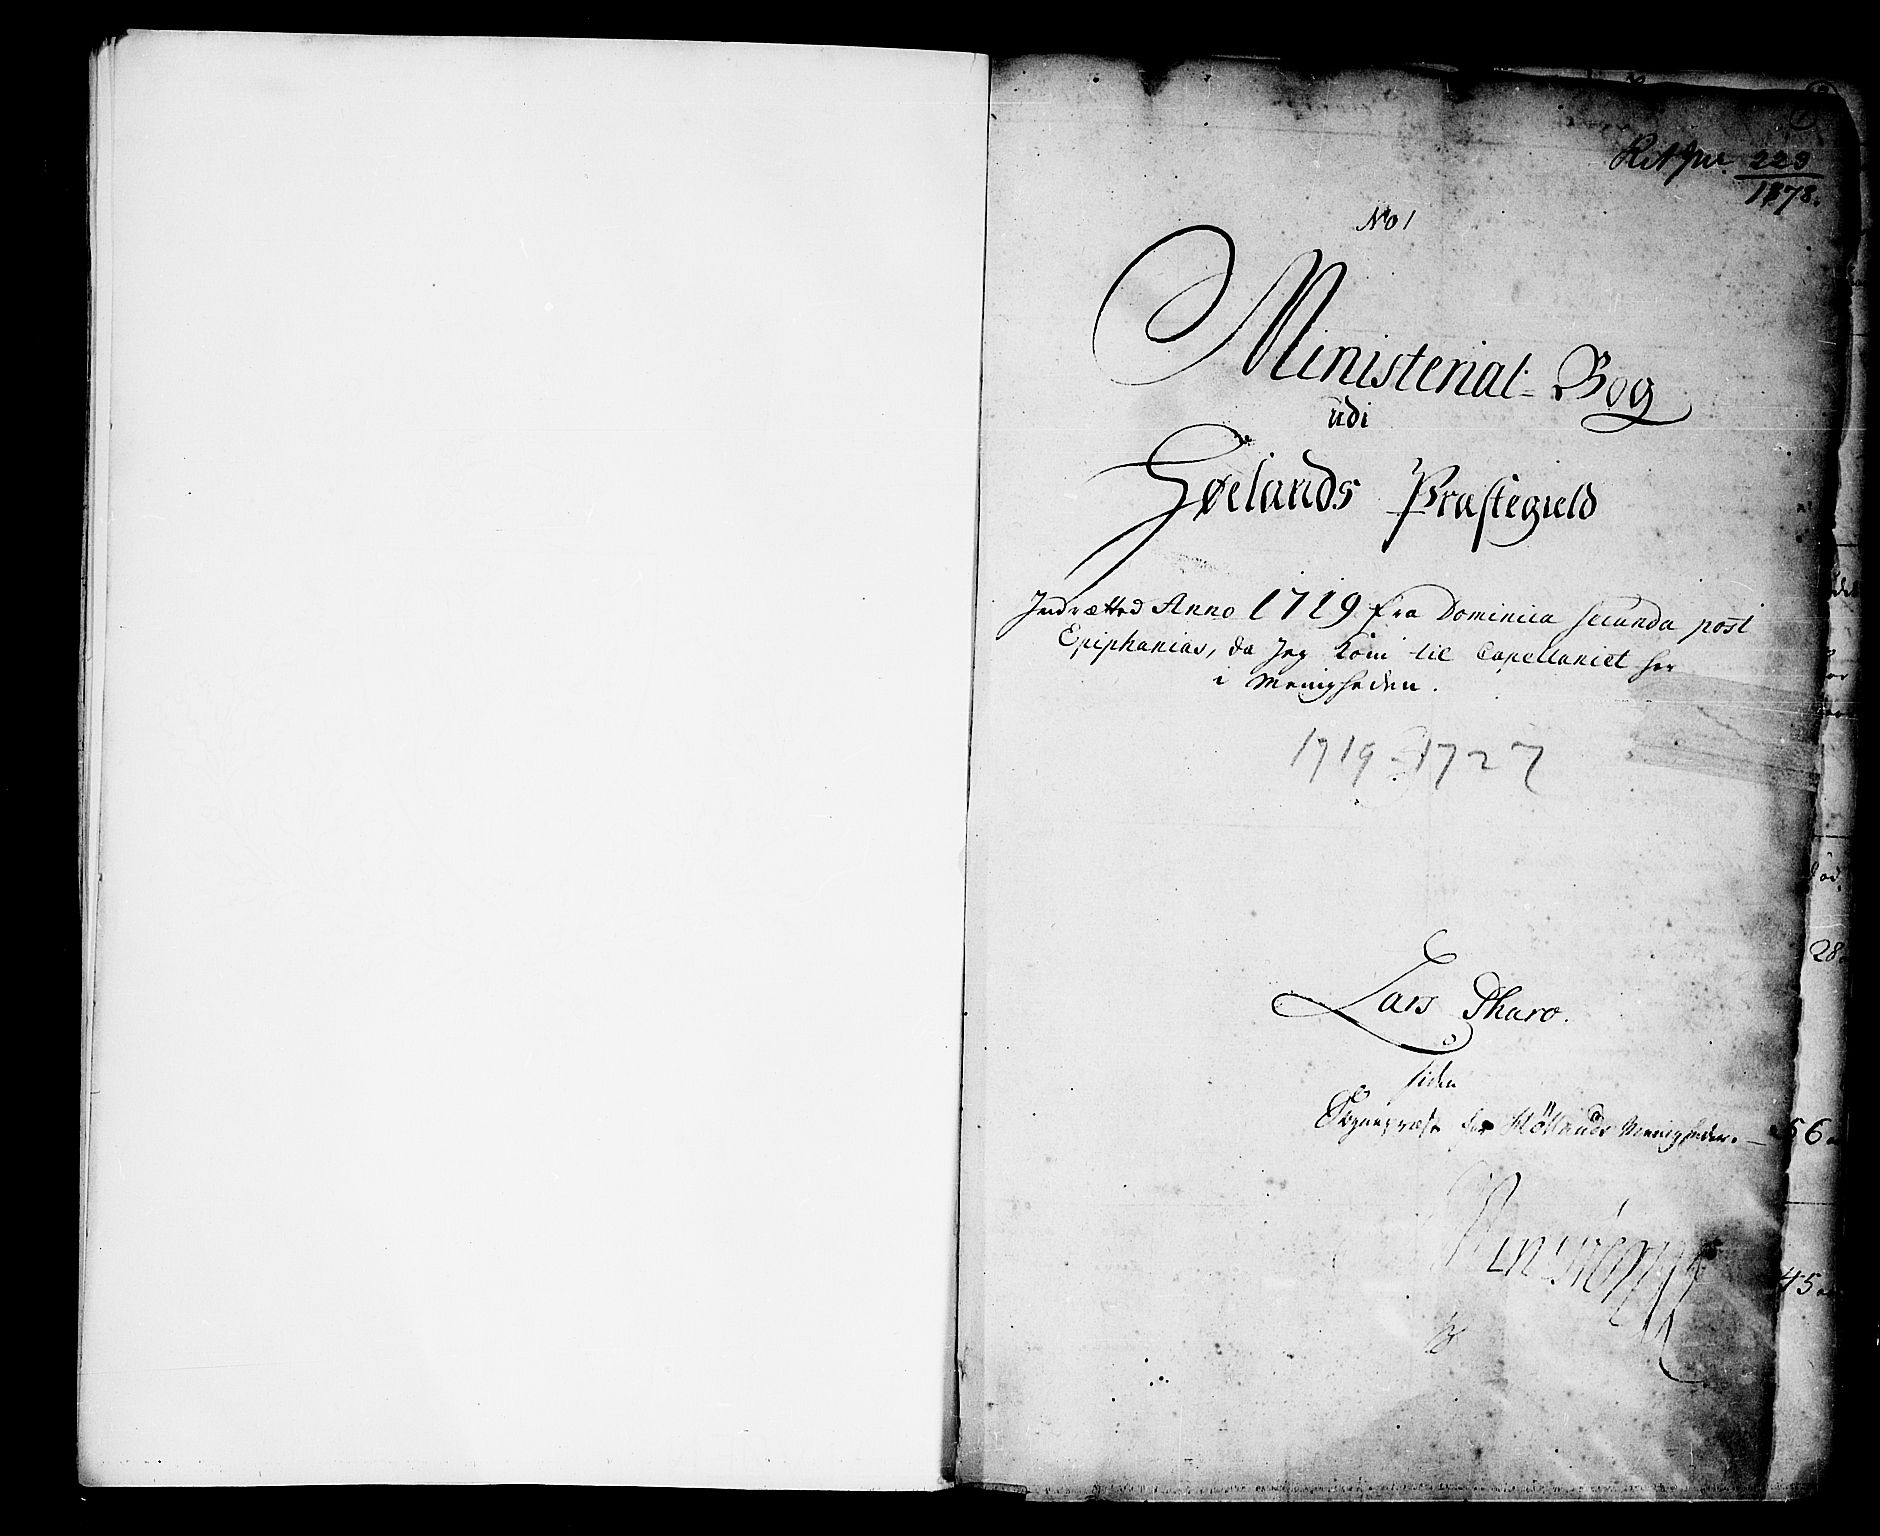 229
1878.
No 1
Ministerial-Bog
udi
Høelands Præstegield
Indrætted Anno 1719 fra Dominica secunda post
Epiphanias, da Jeg kom til Capellaniet her
i Menigheden.
1719-1727
Lars Tharo.
siden
Sognepræst for Höllands Menigheder.
28
56
45